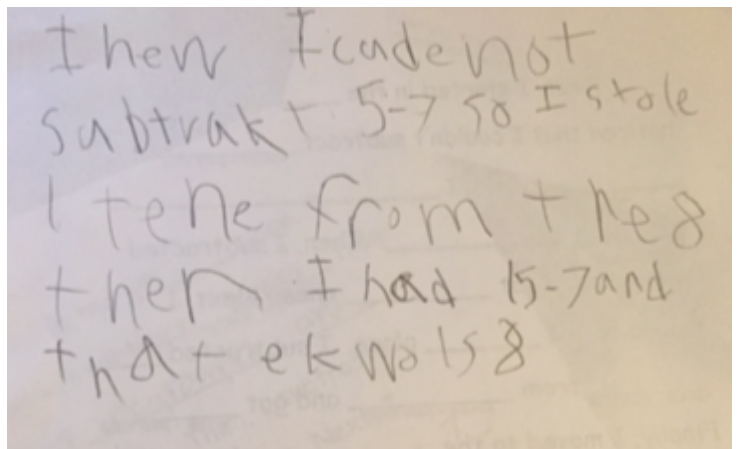 I hen I cude not
subtrakt 5-7 so I stole
1 tene from the 8
then I had 15-7 and
that ekwols 8